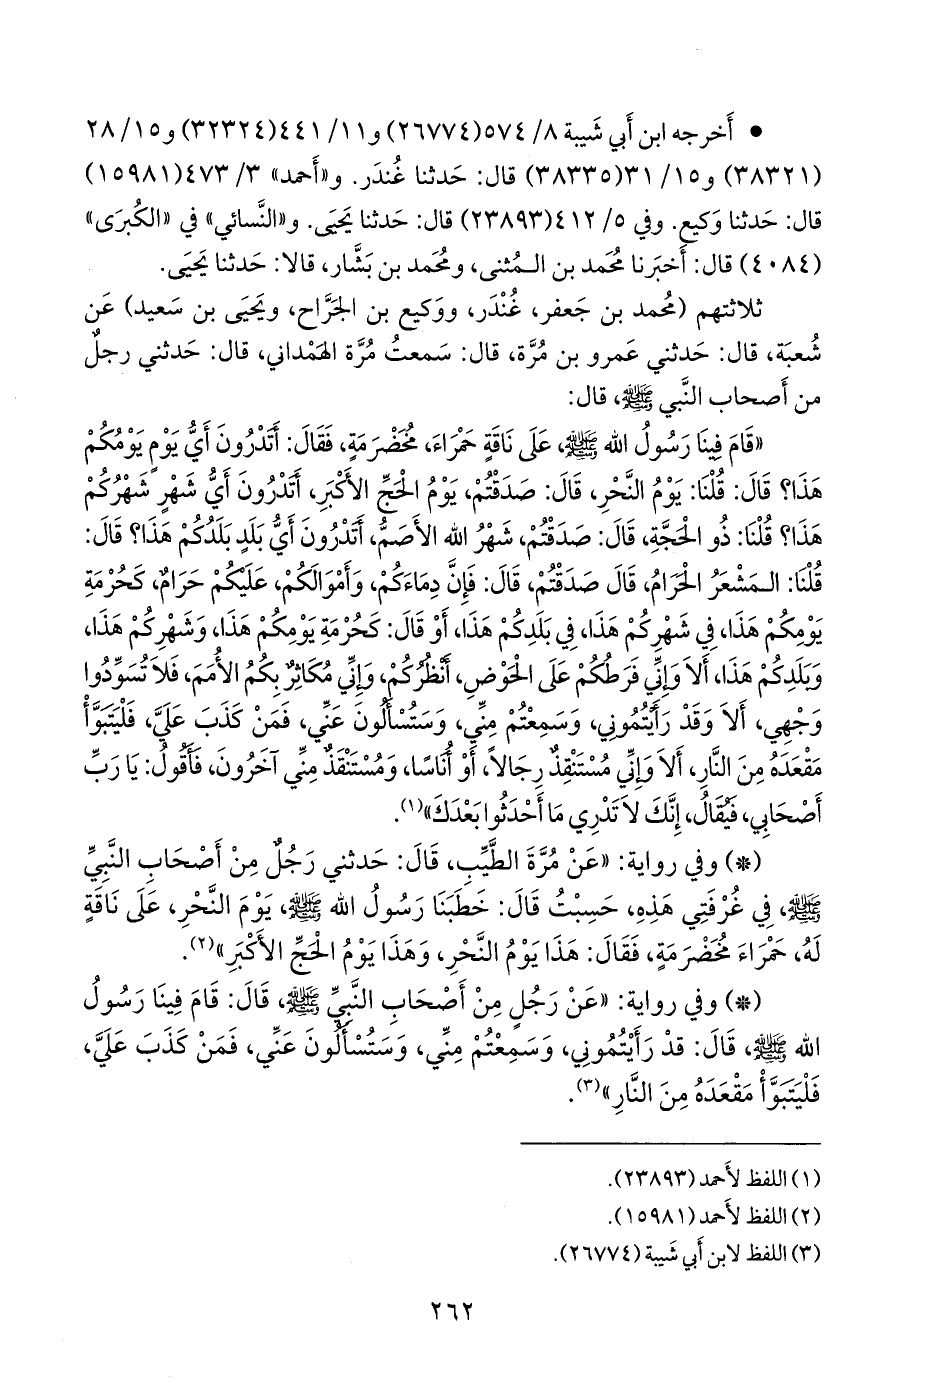 • أَخرجه ابن أَبي شَيبة ٨/ ٥٧٤(٢٦٧٧٤) و١١/ ٤٤١(٣٢٣٢٤) و١٥/ ٢٨
(٣٨٣٢١) و١٥/ ٣١(٣٨٣٣٥) قال: حَدثنا غُندَر. و«أَحمد» ٣/ ٤٧٣(١٥٩٨١)
قال: حَدثنا وَكيع. وفي ٥/ ٤١٢(٢٣٨٩٣) قال: حَدثنا يَحيَى. و«النَّسائي» في «الكُبرَى»
(٤٠٨٤) قال: أَخبَرنا مُحمد بن الـمُثنى، ومُحمد بن بَشَّار، قالا: حَدثنا يَحيَى.
ثلاثتهم (مُحمد بن جَعفر، غُنْدَر، ووكيع بن الجَرَّاح، ويَحيَى بن سَعيد) عَن
شُعبَة، قال: حَدثني عَمرو بن مُرَّة، قال: سَمعتُ مُرَّة الهَمْداني، قال: حَدثني رجلٌ
من أَصحاب النَّبي ﷺ، قال:
«قَامَ فِينَا رَسُولُ الله ﷺ، عَلَى نَاقَةٍ حَمْرَاءَ، مُخَضْرَمَةٍ، فَقَالَ: أَتَدْرُونَ أَيُّ يَوْمٍ يَوْمُكُمْ
هَذَا؟ قَالَ: قُلْنَا: يَوْمُ النَّحْرِ، قَالَ: صَدَقْتُمْ، يَوْمُ الْحَجِّ الأَكْبَرِ، أَتَدْرُونَ أَيُّ شَهْرٍ شَهْرُكُمْ
هَذَا؟ قُلْنَا: ذُو الْحِجَّةِ، قَالَ: صَدَقْتُمْ، شَهْرُ الله الأَصَمُّ، أَتَدْرُونَ أَيُّ بَلَدٍ بَلَدُكُمْ هَذَا؟ قَالَ:
قُلْنَا: الـمَشْعَرُ الْحَرَامُ، قَالَ صَدَقْتُمْ، قَالَ: فَإِنَّ دِمَاءَكُمْ، وَأَمْوَالَكُمْ، عَلَيْكُمْ حَرَامٌ، كَحُرْمَةِ
يَوْمِكُمْ هَذَا، فِي شَهْرِكُمْ هَذَا، فِي بَلَدِكُمْ هَذَا، أَوْ قَالَ: كَحُرْمَةِ يَوْمِكُمْ هَذَا، وَشَهْرِكُمْ هَذَا،
وَبَلَدِكُمْ هَذَا، أَلاَ وَإِنِّي فَرَطُكُمْ عَلَى الْحَوْضِ، أَنْظُرُكُمْ، وَإِنِّي مُكَاثِرٌ بِكُمُ الأُمَمَ، فَلاَ تُسَوِّدُوا
وَجْهِي، أَلاَ وَقَدْ رَأَيْتُمُونِي، وَسَمِعْتُمْ مِنِّي، وَسَتُسْأَلُونَ عَنِّي، فَمَنْ كَذَبَ عَلَيَّ، فَلْيَتَبَوَّأْ
مَقْعَدَهُ مِنَ النَّارِ، أَلاَ وَإِنِّي مُسْتَنْقِذٌ رِجَالاً، أَوْ أُنَاسًا، وَمُسْتَنْقَذٌ مِنِّي آخَرُونَ، فَأَقُولُ: يَا رَبِّ
أَصْحَابِي، فَيُقَالُ، إِنَّكَ لاَ تَدْرِي مَا أَحْدَثُوا بَعْدَكَ»(١).
(*) وفي رواية: «عَنْ مُرَّةَ الطَّيِّبِ، قَالَ: حَدثني رَجُلٌ مِنْ أَصْحَابِ النَّبِيِّ
ﷺ، فِي غُرْفَتِي هَذِهِ، حَسِبْتُ قَالَ: خَطَبَنَا رَسُولُ الله ﷺ، يَوْمَ النَّحْرِ، عَلَى نَاقَةٍ
لَهُ، حَمْرَاءَ مُخَضْرَمَةٍ، فَقَالَ: هَذَا يَوْمُ النَّحْرِ، وَهَذَا يَوْمُ الْحَجِّ الأَكْبَرِ»(٢).
(*) وفي رواية: «عَنْ رَجُلٍ مِنْ أَصْحَابِ النَّبِيِّ ﷺ، قَالَ: قَامَ فِينَا رَسُولُ
الله ﷺ، قَالَ: قدْ رَأَيْتُمُونِي، وَسَمِعْتُمْ مِنِّي، وَسَتُسْأَلُونَ عَنِّي، فَمَنْ كَذَبَ عَلَيَّ،
فَلْيَتَبَوَّأْ مَقْعَدَهُ مِنَ النَّارِ»(٣).
(١) اللفظ لأَحمد (٢٣٨٩٣).
(٢) اللفظ لأَحمد (١٥٩٨١).
(٣) اللفظ لابن أَبي شَيبة (٢٦٧٧٤).
٢٦٢